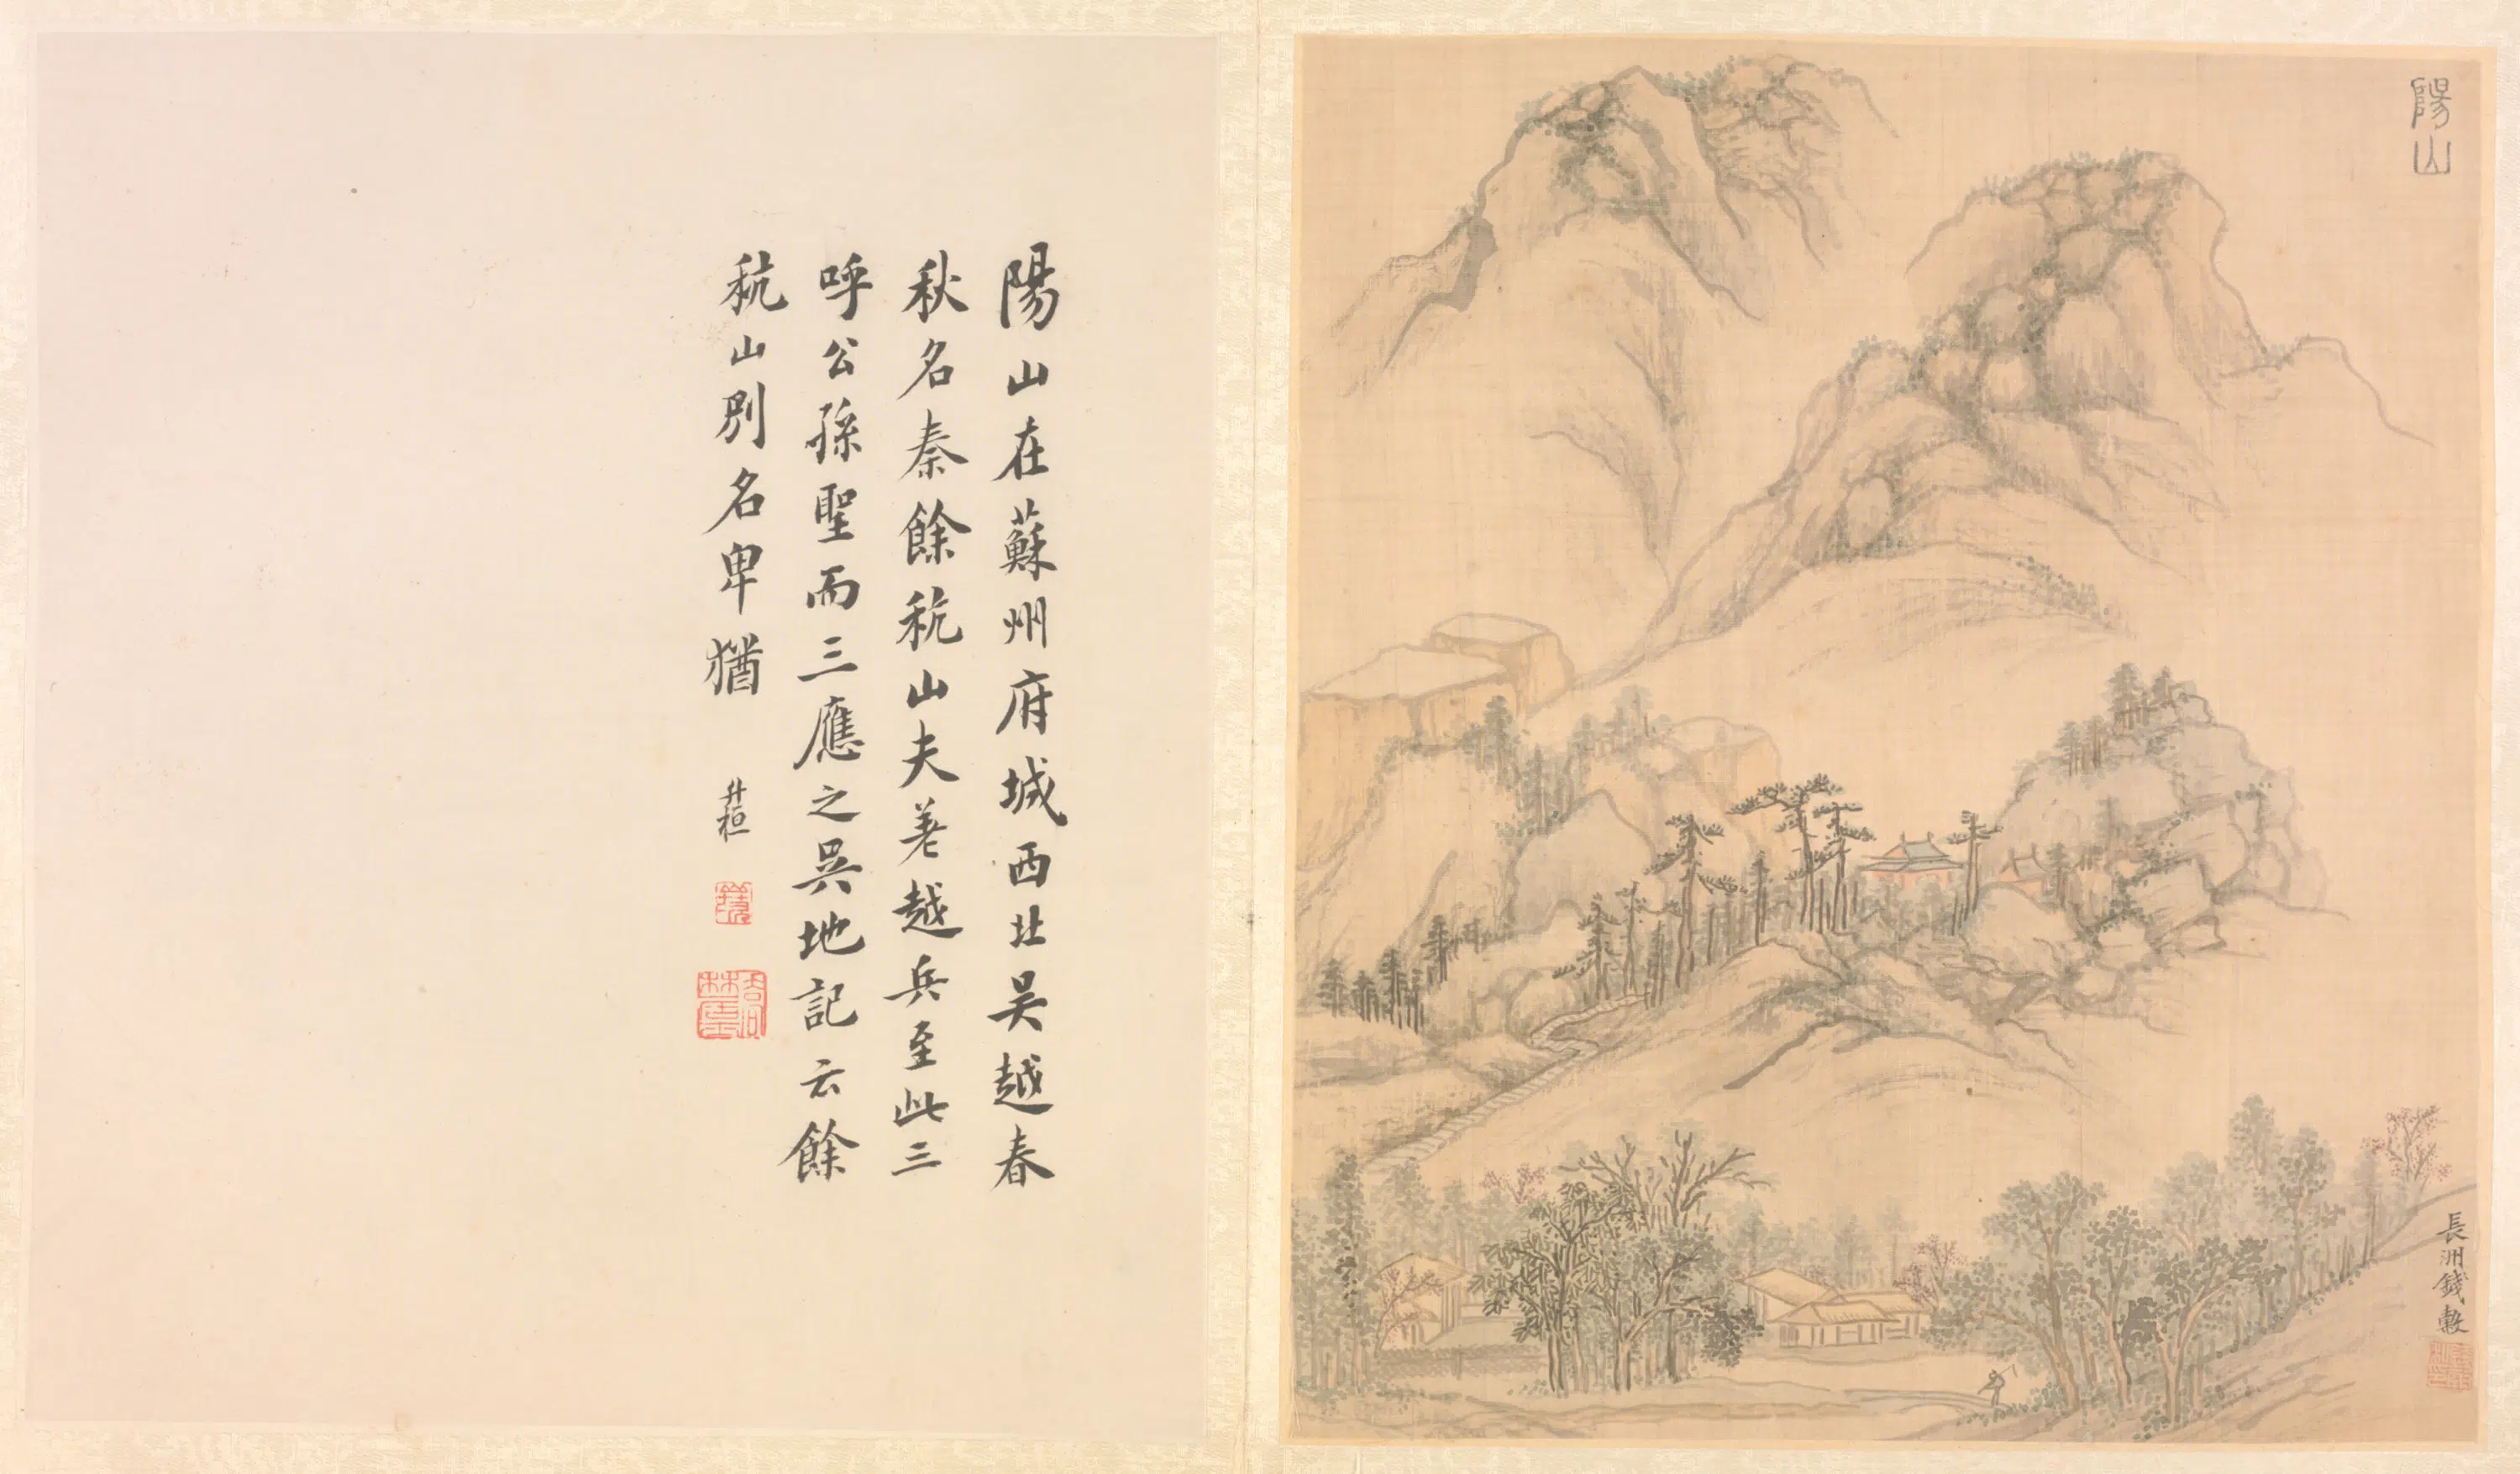 陽山
長洲錢穀
陽山在蘇州府城西北吴越春
秋名秦餘秔山夫差越兵至此三
呼公孫聖而三應之吳地記云餘
秔山別名卑猶
升桓